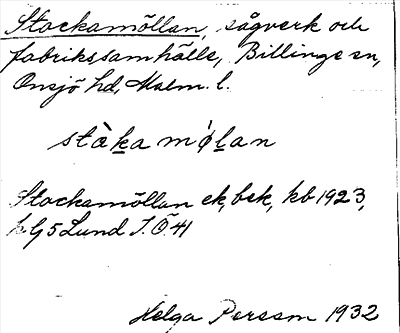 Stockamöllan, sågverk och
fabrikssamhälle, Billinge sn,
Onsjö hd, Malm. l.
stȧka mo̍lan
Stockamöllan ek, bek, kb 1923,
Lund J. Ö. 41
Helga Persson 1932